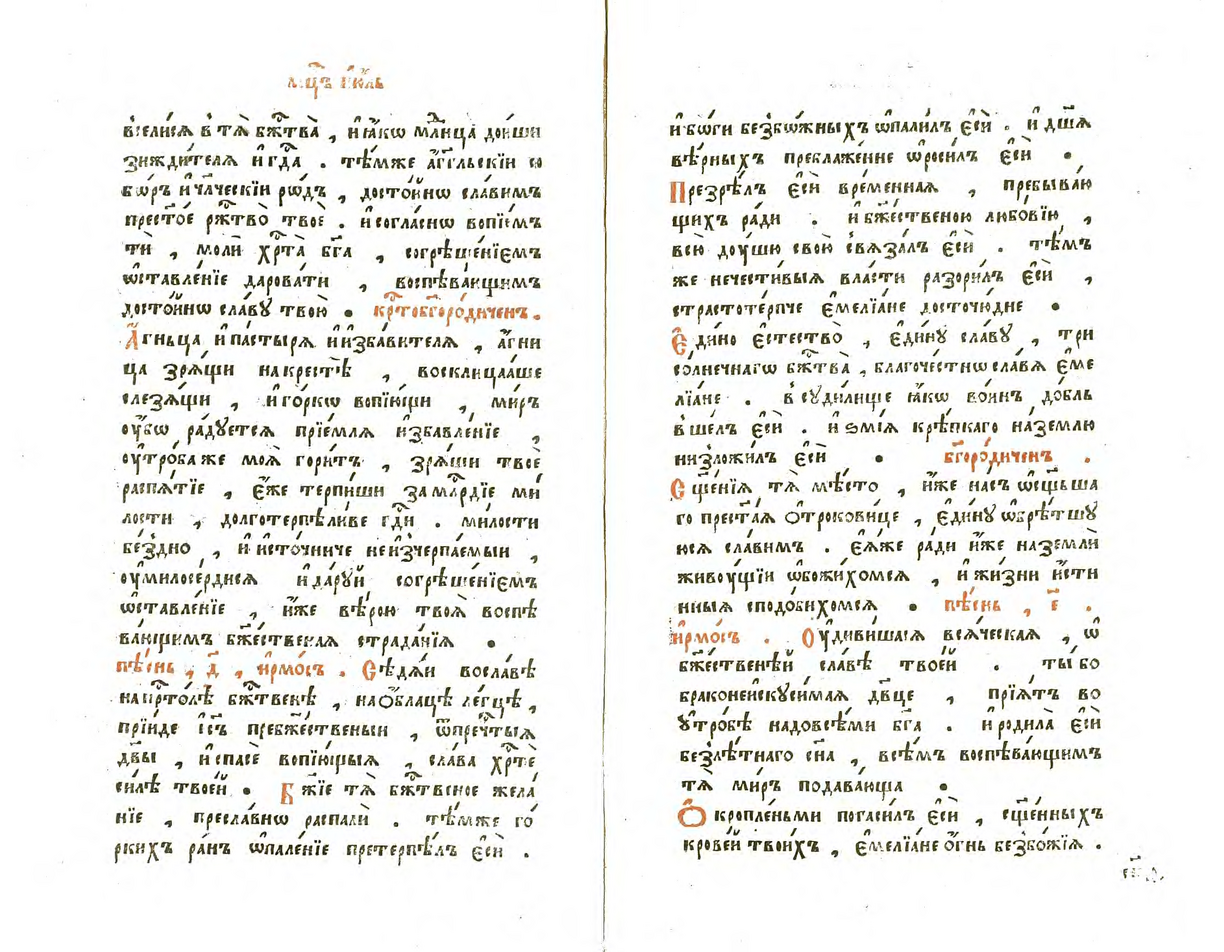 мцⷭ҇ъ і҆ю́ль
всели́сѧ в тѧ̀ бжⷭ҇тва̀ , и҆ ꙗ҆́кѡ младⷣнца дои́ши
зижди́телѧ и҆ гдⷭ҇а . тѣ́мже а҆́гг҃льскїи со
бо́ръ и҆ чл҃ческїи ро́дъ , досто́йнѡ сла́вимъ
прест҃о́е ржⷭ҇тво̀ твоѐ . и҆ согла́снѡ вопїе́мъ
тѝ , молѝ хрⷭ҇та̀ бг҃а , согрѣше́нїємъ
ѡ҆ставле́нїе дарова́ти , воспѣва́ющимъ
досто́йнѡ сла́вꙋ твою̀ . крⷭ҇тобг҃оро́диченъ .
А҆́гньца и҆ па́стырѧ и҆ и҆зба́вителѧ , а҆́гни
ца зрѧ́щи на крестѣ̀ , восклица́аше
слезѧ́щи , и҆ го́ркѡ вопїю́щи , ми́ръ
ᲂу҆́бѡ ра́дꙋетсѧ прїе́млѧ и҆збавле́нїе ,
ᲂу҆тро́ба же моѧ̀ гори́тъ , зрѧ́щи твоѐ
распѧ́тїе , є҆́же терпи́ши за млⷭ҇рдїе ми
лости , долготерпѣли́ве гдⷭ҇и . ми́лости
бе́здно , и҆ и҆сто́чниче неи҆зчерпа́емыи ,
ᲂу҆милосе́рдисѧ и҆ да́рꙋй согрѣше́нїємъ
ѡ҆ставле́нїе , и҆́же вѣ́рою твоѧ̀ воспѣ
ва́ющимъ бжⷭ҇ественаѧ страда́нїѧ .
пѣ́снь , д҃ , и҆рмо́съ . Сѣдѧ́и во сла́вѣ
на прⷭ҇то́лѣ бжⷭ҇твенѣ , на ѻ҆́блацѣ ле́гцѣ ,
прїи́де і҆с҃ъ пребжⷭ҇е́ственыи , ѿ пречⷭ҇тыѧ
дв҃ы , и҆ спасѐ вопїю́щыѧ , сла́ва хрⷭ҇тѐ
си́лѣ твое́й . Бж҃їе тѧ̀ бжⷭ҇твеное жела́
нїе , пресла́внѡ распалѝ . тѣ́мже го́
ркихъ ра́нъ ѡ҆пале́нїе претерпѣ́лъ є҆сѝ .
и҆ бо́ги безбо́жныхъ ѡ҆пали́лъ є҆сѝ . и҆ дш҃ѧ
вѣ́рныхъ преблаже́нне ѡ҆роси́лъ є҆сѝ .
Презрѣ́лъ є҆сѝ вре́меннаѧ , пребыва́ю
щихъ ра́ди . и҆ бжⷭ҇е́ственою любо́вїю ,
всю̀ дᲂу́шю свою̀ свѧза́лъ є҆сѝ . тѣ́м
же нечести́выѧ вла́сти разори́лъ є҆сѝ ,
страстоте́рпче є҆мелїа́не досточю́дне .
Є҆ди́но є҆стество̀ , є҆ди́нꙋ сла́вꙋ , три
со́лнечнагѡ бжⷭ҇тва̀ , благоче́стнѡ сла́вѧ є҆ме
лїа́не . в сꙋди́лище ꙗ҆́кѡ во́инъ до́бль
вше́лъ є҆сѝ . и҆ ѕмі́ѧ крѣ́пкаго на зе́млю
низложи́лъ є҆сѝ . бг҃оро́диченъ .
Сщ҃е́нїѧ тѧ̀ мѣ́сто , и҆́же на́съ ѡ҆сщ҃ьша
го прест҃а́ѧ ѻ҆трокови́це , є҆ди́нꙋ ѡ҆брѣ́тшꙋ
юсѧ сла́вимъ . є҆ѧ́же ра́ди и҆́же на землѝ
живꙋ́щїи ѡ҆божи́хомсѧ , и҆ жи́зни и҆́сти
нныѧ сподо́бихомсѧ . пѣ́снь , є҃ .
и҆рмо́съ . Оу҆диви́шасѧ всѧ́ческаѧ , ѡ҆
бжⷭ҇е́ственѣй сла́вѣ твое́й . ты́ бо
браконеи҆скꙋси́маѧ дв҃це , прїѧ́тъ во
ꙋ҆тро́бѣ надовсѣ́ми бг҃а . и҆ родила̀ є҆сѝ
безлѣ́тнаго сн҃а , всѣ́мъ воспѣва́ющимъ
тѧ̀ ми́ръ подава́юща .
Ѻ҆кропле́ньми погаси́лъ є҆сѝ , сщ҃е́нныхъ
крове́й твои́хъ , є҆мелїа́не ѻ҆́гнь безбо́жїѧ .